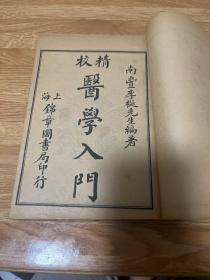 南豐李梴先生編著
精校
醫學入門
上海
錦章圖書局印行